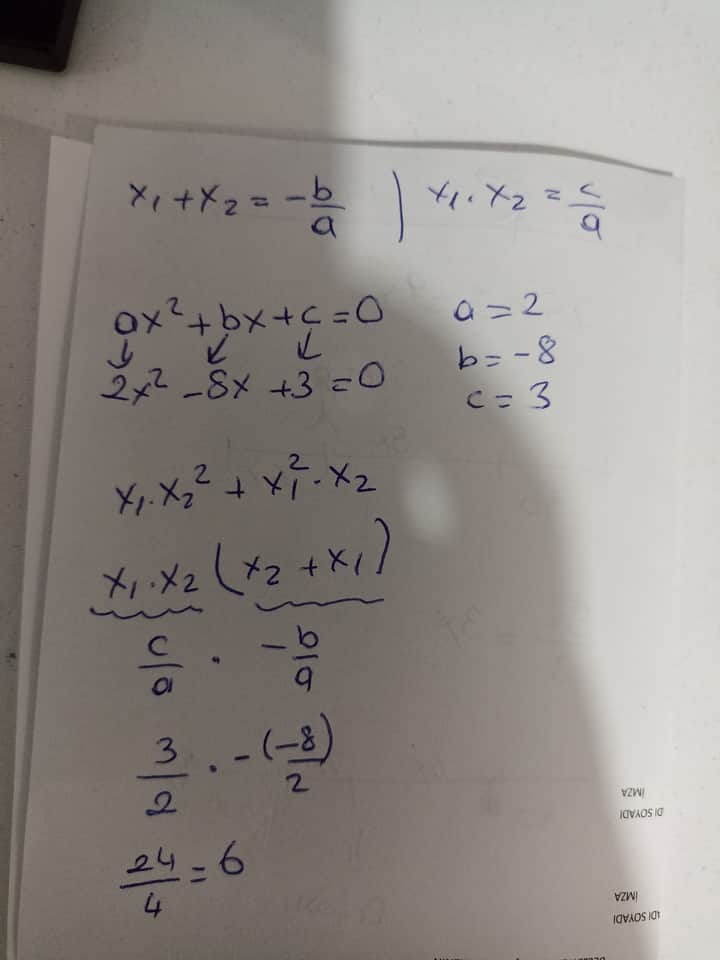 x₁+x₂ = -b/a | x₁.x₂ = c/a
ax²+bx+c=0 a=2
2x²-8x+3=0 b=-8
c=3
x₁.x₂² + x₁².x₂
x₁.x₂(x₂+x₁)
c/a . -b/a
3/2 . -(-8)/2
24/4=6
İMZA
DI SOYADI
İMZA
ADI SOYADI